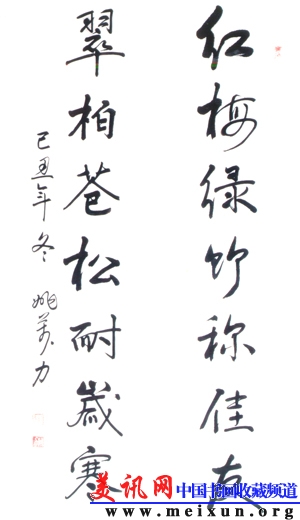 红梅绿竹称佳友
翠柏苍松耐岁寒
己丑年冬 姚万力
美讯网 中国书画收藏频道
www.meixun.org